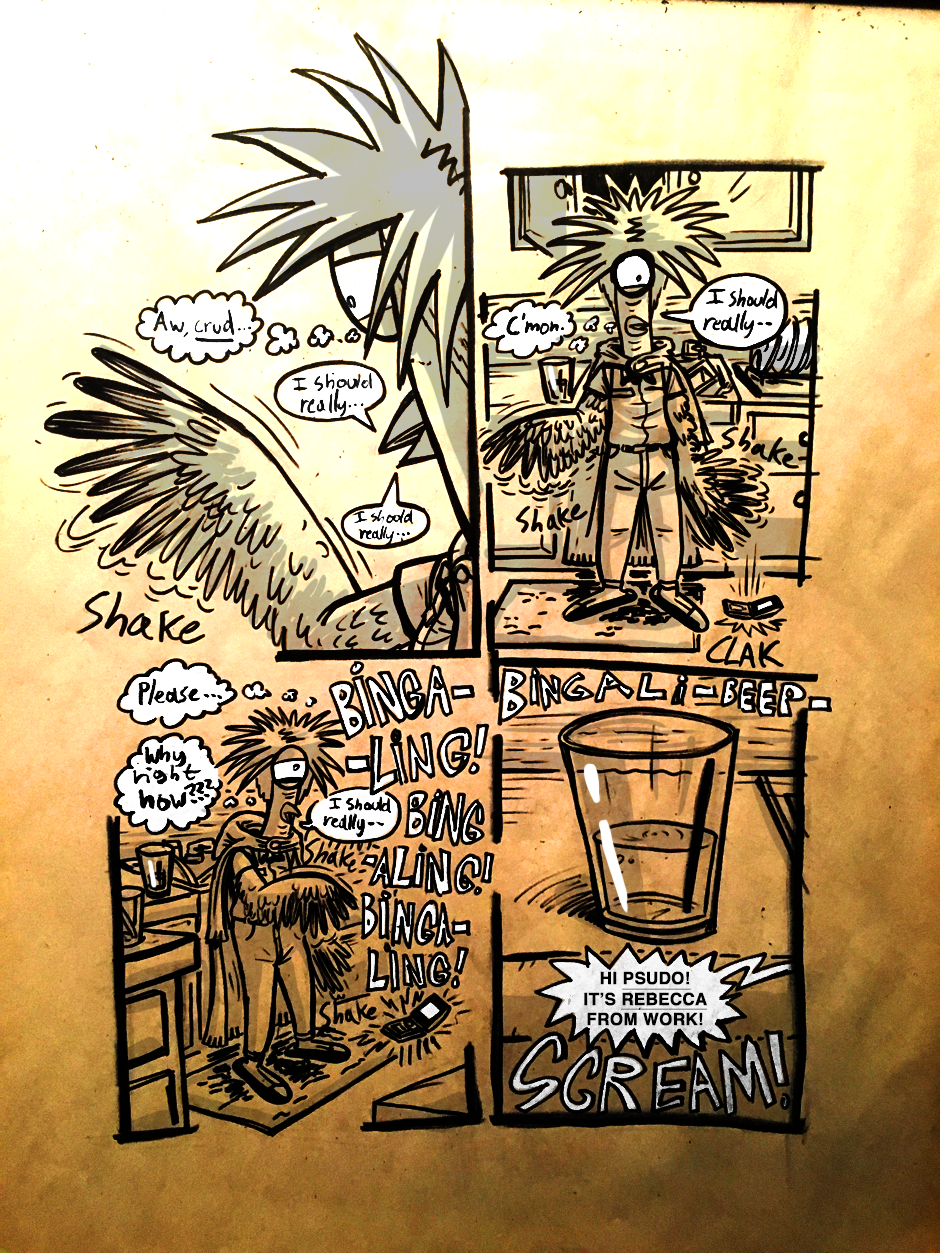 Aw, crud...
I should
really...
I should
really...
Shake
C'mon.
I should
really--
Shake
Shake
CLAK
Please...
Why
right
now???
I should
really--
Shake
Shake
BINGA-
-LING!
BING
-ALING!
BINGA-
LING!
BINGALi-BEEP-
HI PSUDO!
IT'S REBECCA
FROM WORK!
SCREAM!